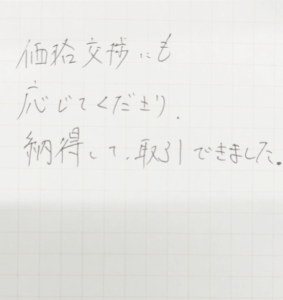 価格交渉にも
応じてくださり.
納得して、取引できました。